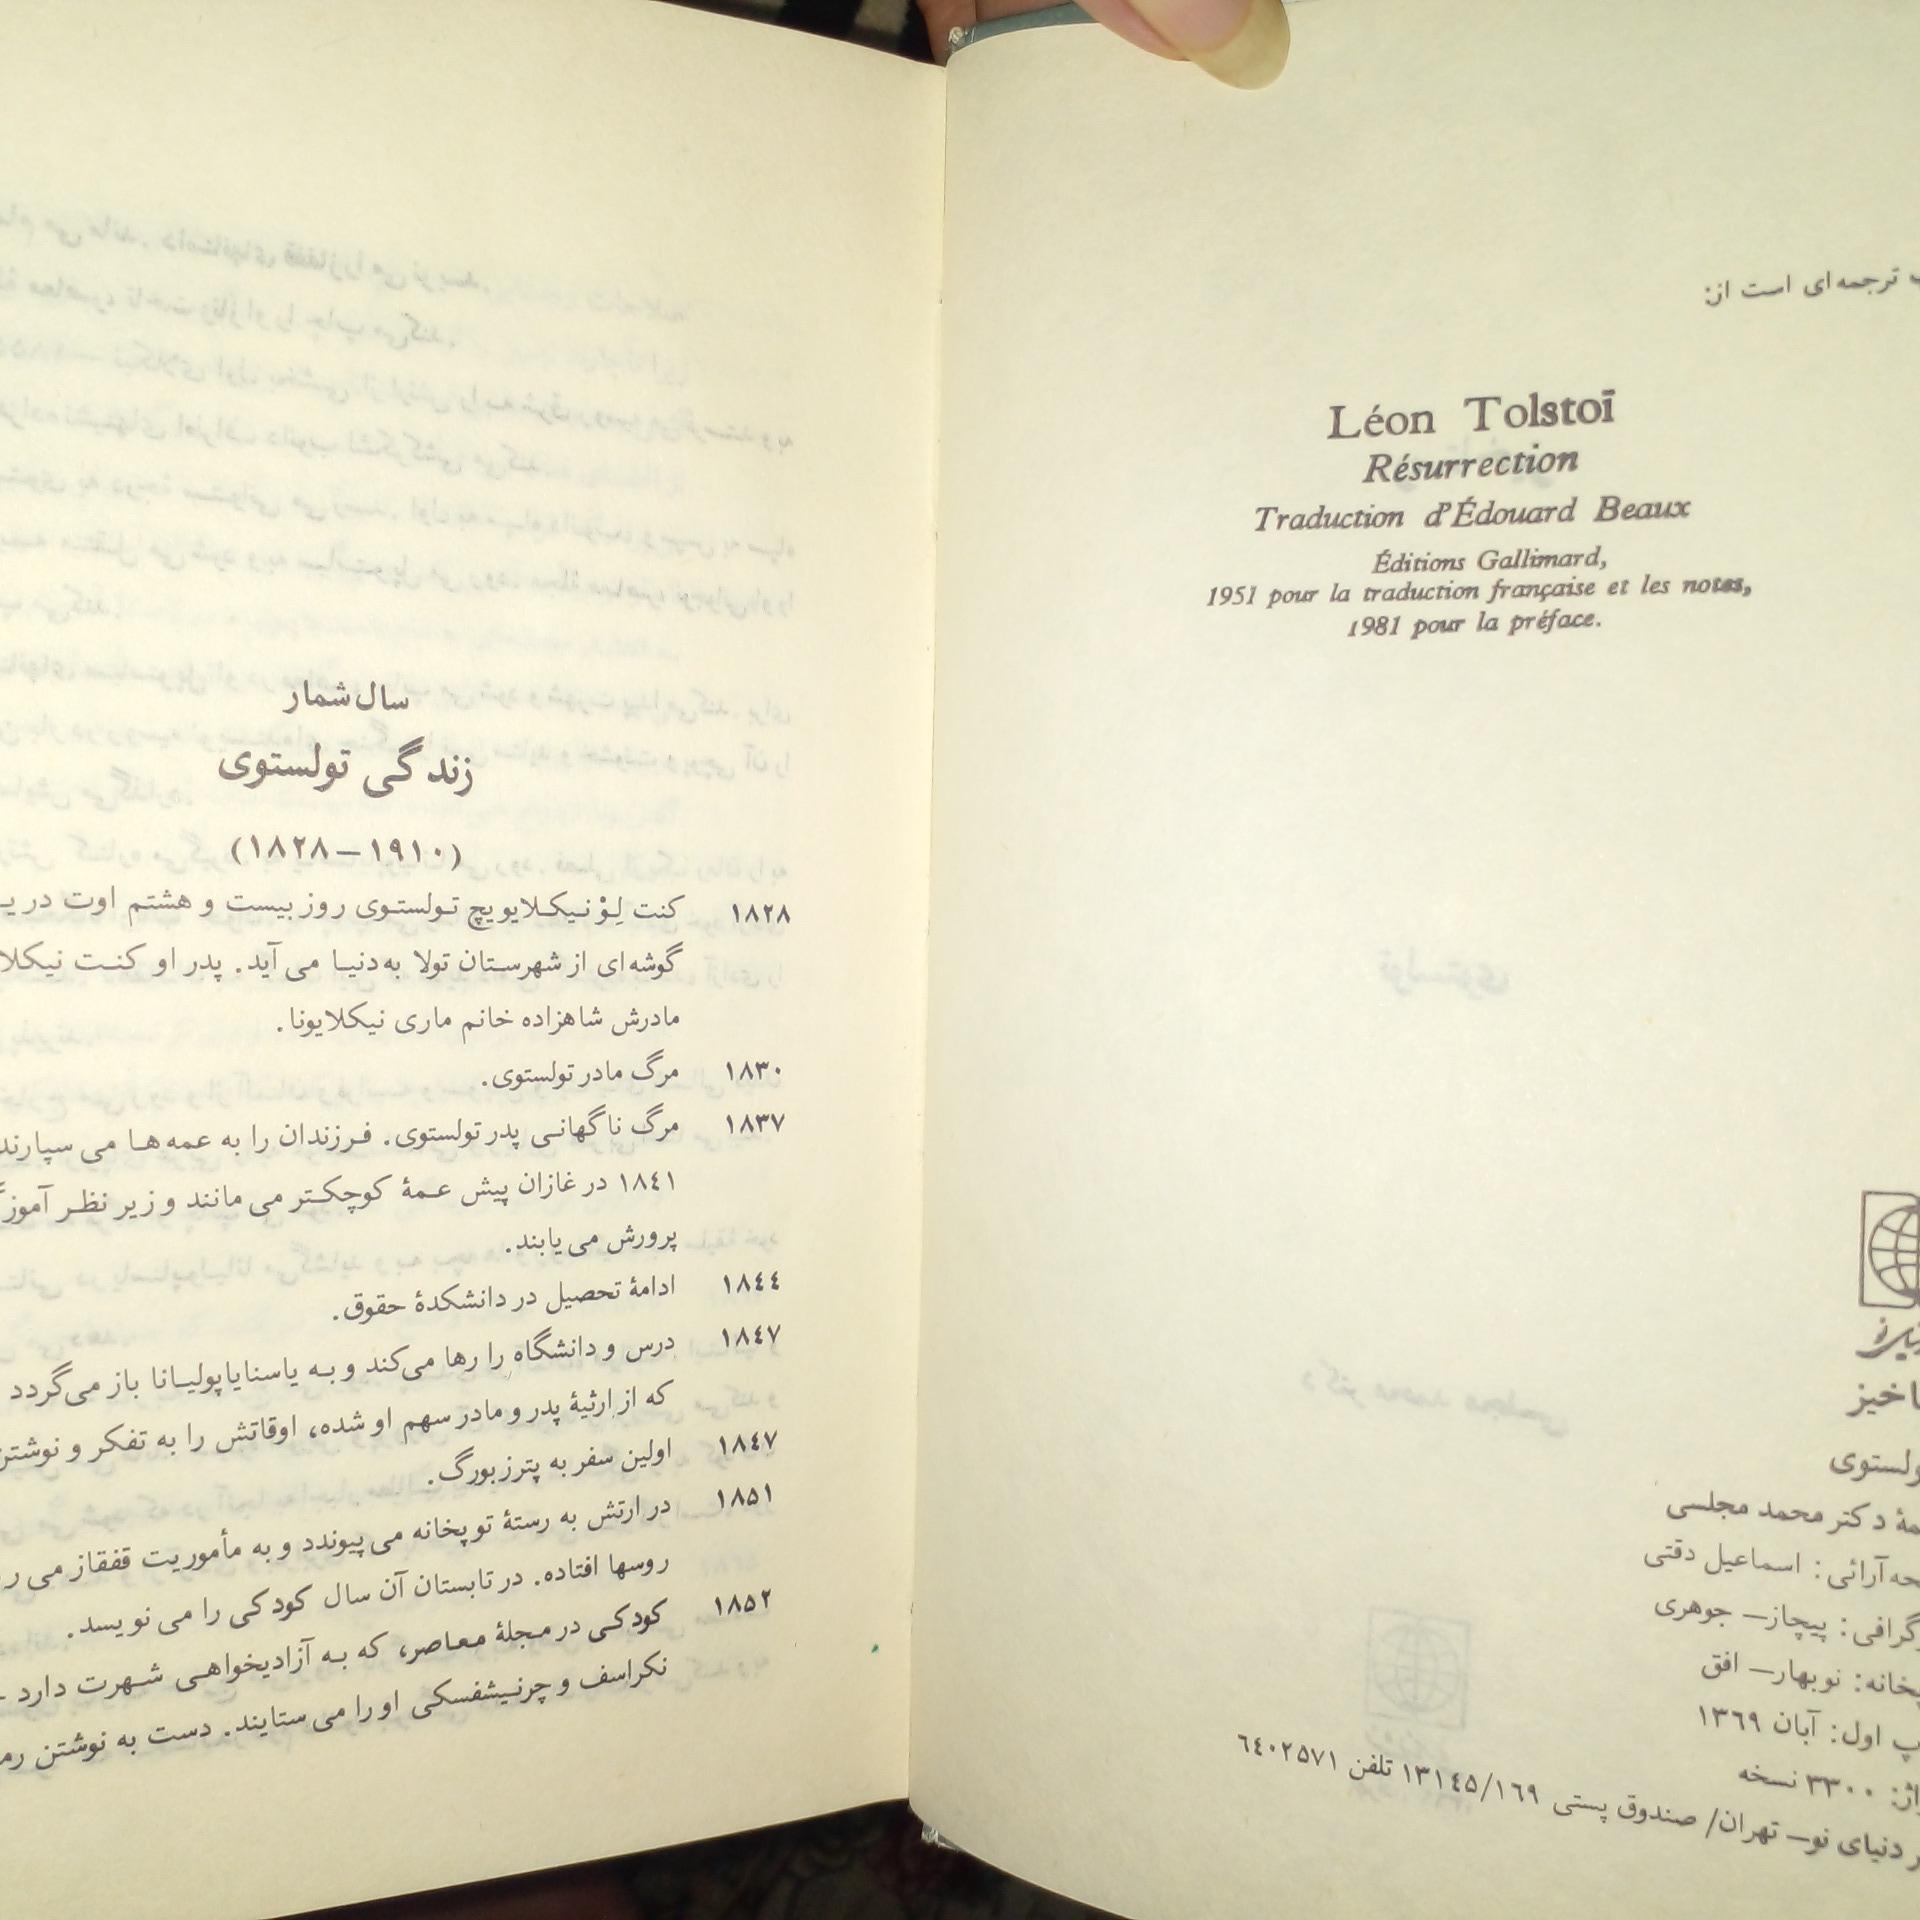 ترجمه‌ای است از:
Léon Tolstoï
Résurrection
Traduction d'Édouard Beaux
Éditions Gallimard,
1951 pour la traduction française et les notes,
1981 pour la préface.
دکتر محمد مجلسی
اسماعیل دقتی
پیچاز— جوهری
نوبهار— افق
اول: آبان ۱۳۶۹
۳۳۰۰ نسخه
دنیای نو— تهران/ صندوق پستی ۱۳۱٤۵/۱۶۹ تلفن ۶٤۰۲۵۷۱
سال شمار
زندگی تولستوی
(۱۸۲۸—۱۹۱۰)
۱۸۲۸ کنت لِوْ نیکلایویچ تولستوی روز بیست و هشتم اوت در
گوشه‌ای از شهرستان تولا به‌دنیا می‌آید. پدر او کنت
مادرش شاهزاده خانم ماری نیکلایونا.
۱۸۳۰ مرگ مادر تولستوی.
۱۸۳۷ مرگ ناگهانی پدر تولستوی. فرزندان را به عمه‌ها می‌سپارند
۱۸٤۱ در غازان پیش عمهٔ کوچکتر می‌مانند و زیر نظر
پرورش می‌یابند.
۱۸٤٤ ادامهٔ تحصیل در دانشکدهٔ حقوق.
۱۸٤۷ درس و دانشگاه را رها می‌کند و به یاسنایاپولیانا باز می‌گردد
که از ارثیهٔ پدر و مادر سهم او شده، اوقاتش را به تفکر و نوشتن
۱۸٤۷ اولین سفر به پترزبورگ.
۱۸۵۱ در ارتش به رستهٔ توپخانه می‌پیوندد و به مأموریت قفقاز
روسها افتاده. در تابستان آن سال کودکی را می‌نویسد.
۱۸۵۲ کودکی در مجلهٔ معاصر، که به آزادیخواهی شهرت دارد
نکراسف و چرنیشفسکی او را می‌ستایند. دست به نوشتن